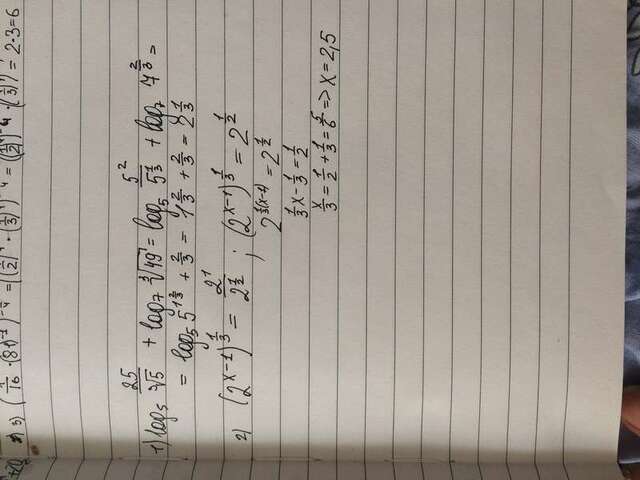 3) (1/16 · (81)^-1)^-1/4 = ((1/2)^4 · (1/3)^4)^-1/4 = ((1/2)^4)^-1/4 · ((1/3)^4)^-1/4 = 2·3=6
1) log₅ 25/∛5 + log₇ ∛49 = log₅ 5²/5^(1/3) + log₇ 7^(2/3) =
= log₅ 5^(1 2/3) + 2/3 = 1 2/3 + 2/3 = 2 1/3
2) (2^(x-1))^(1/3) = 2^1/2^(1/2) ; (2^(x-1))^(1/3) = 2^(1/2)
2^(1/3(x-1)) = 2^(1/2)
1/3 x - 1/3 = 1/2
x/3 = 1/2 + 1/3 = 5/6 => x = 2,5